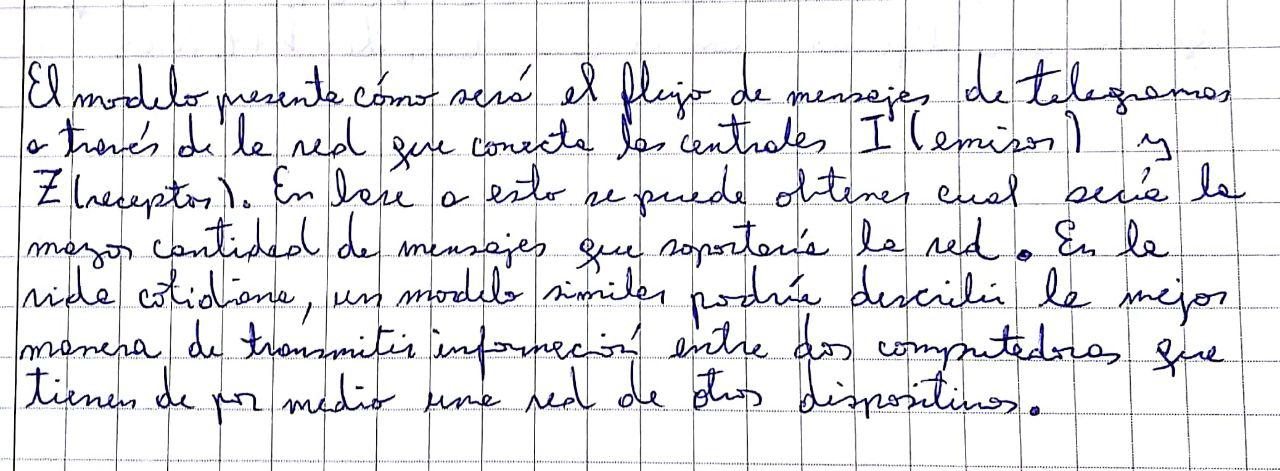 El modelo presenta cómo será el flujo de mensajes de telegramas
a través de la red que conecta las centrales I (emisor) y
Z (receptor). En base a esto se puede obtener cual sería la
mayor cantidad de mensajes que soportaría la red. En la
vida cotidiana, un modelo similar podría describir la mejor
manera de transmitir información entre dos computadoras que
tienen de por medio una red de otros dispositivos.